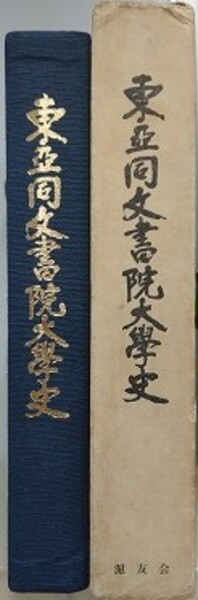 東亞同文書院大學史
東亞同文書院大學史
滬友会